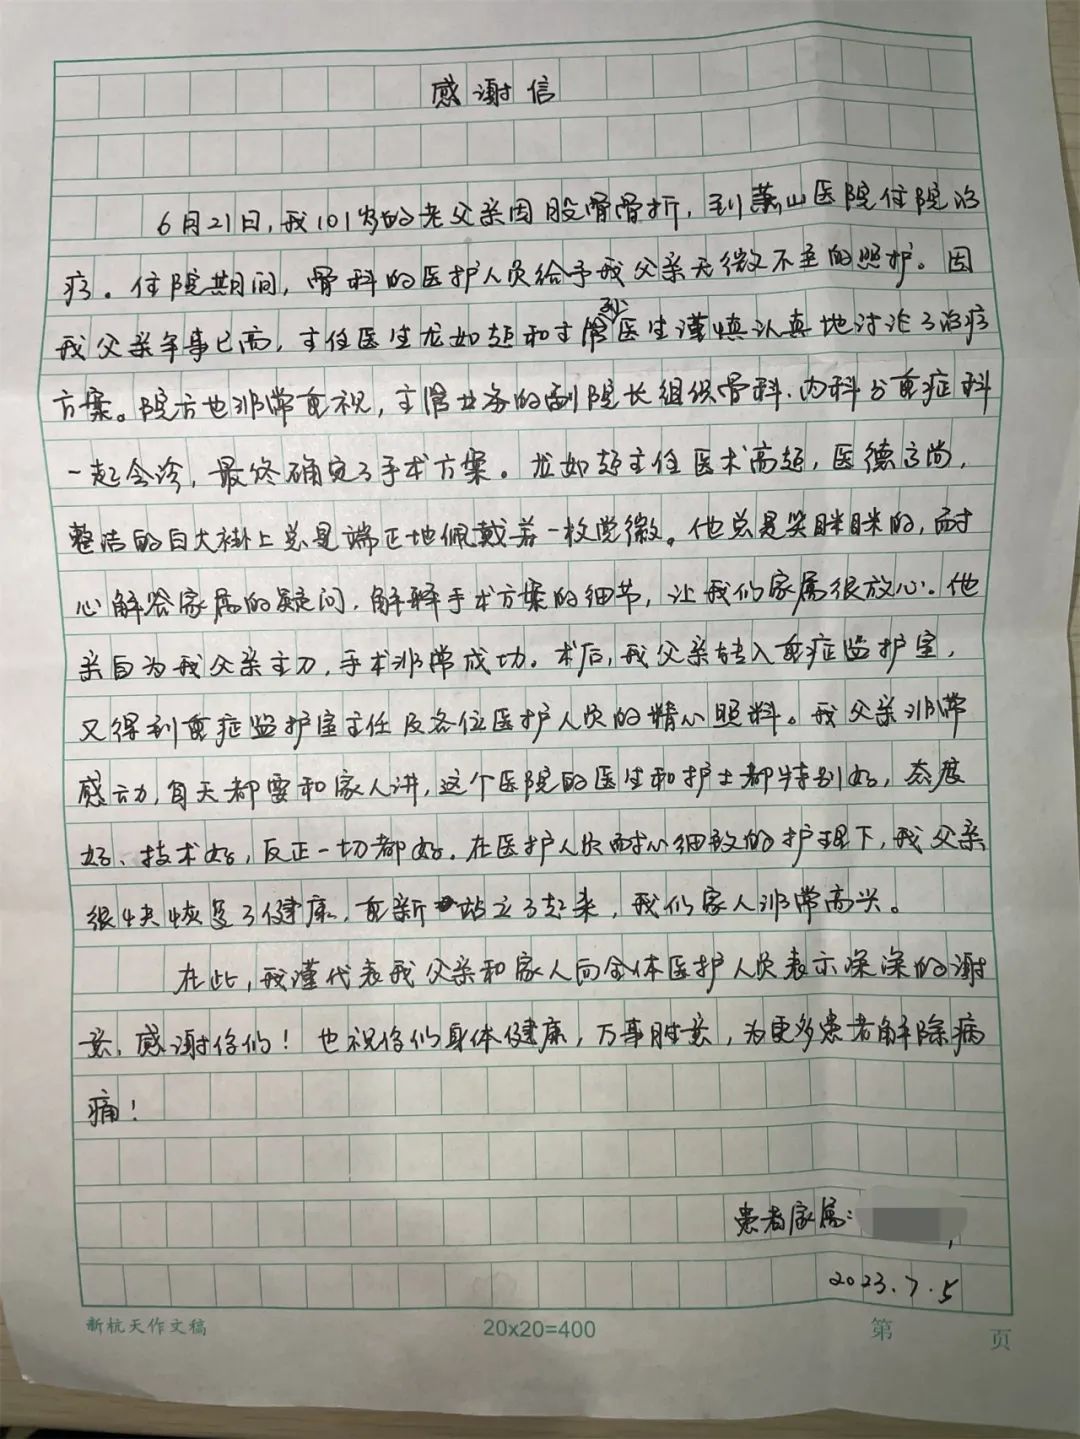 感谢信
6月21日，我101岁的老父亲因股骨骨折，到萧山医院住院治
疗。住院期间，骨科的医护人员给予我父亲无微不至的照护。因
我父亲年事已高，主任医生龙如超和主管孙医生谨慎认真地讨论了治疗
方案。院方也非常重视，主管业务的副院长组织骨科、内科与重症科
一起会诊，最终确定了手术方案。龙如超主任医术高超，医德高尚，
整洁的白大褂上总是端正地佩戴着一枚党徽。他总是笑眯眯的，耐
心解答家属的疑问，解释手术方案的细节，让我们家属很放心。他
亲自为我父亲主刀，手术非常成功。术后，我父亲转入重症监护室，
又得到重症监护室主任及各位医护人员的精心照料。我父亲非常
感动，每天都要和家人讲，这个医院的医生和护士都特别好，态度
好、技术好，反正一切都好。在医护人员耐心细致的护理下，我父亲
很快恢复了健康，重新站立了起来，我们家人非常高兴。
在此，我谨代表我父亲和家人向全体医护人员表示深深的谢
意，感谢你们！也祝你们身体健康，万事胜意，为更多患者解除病
痛！
患者家属：
2023.7.5
新杭天作文稿 20x20=400 第 页